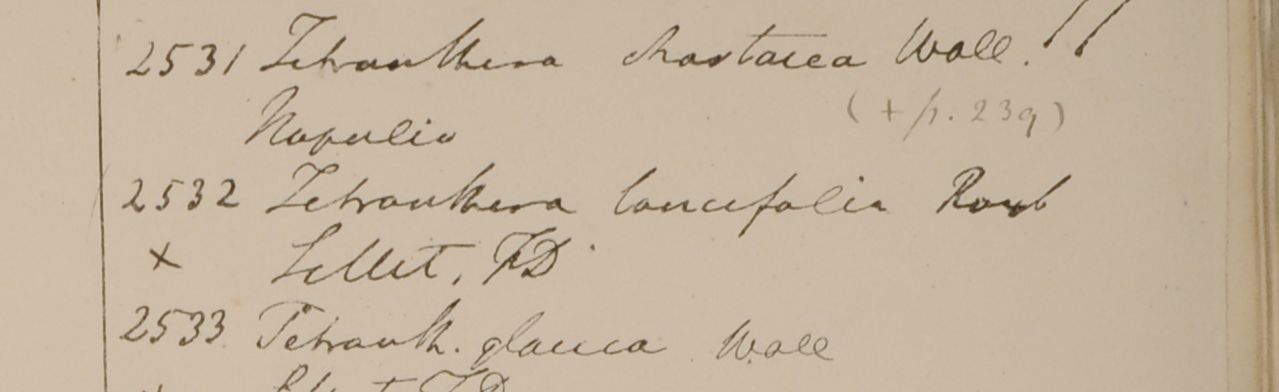 2531 Tetranthera chartacea Wall. !!
(+ p. 239)
Napalia
2532 Tetranthera lancifolia Roxb
× Sillet, FD
2533 Tetranth. glauca Wall